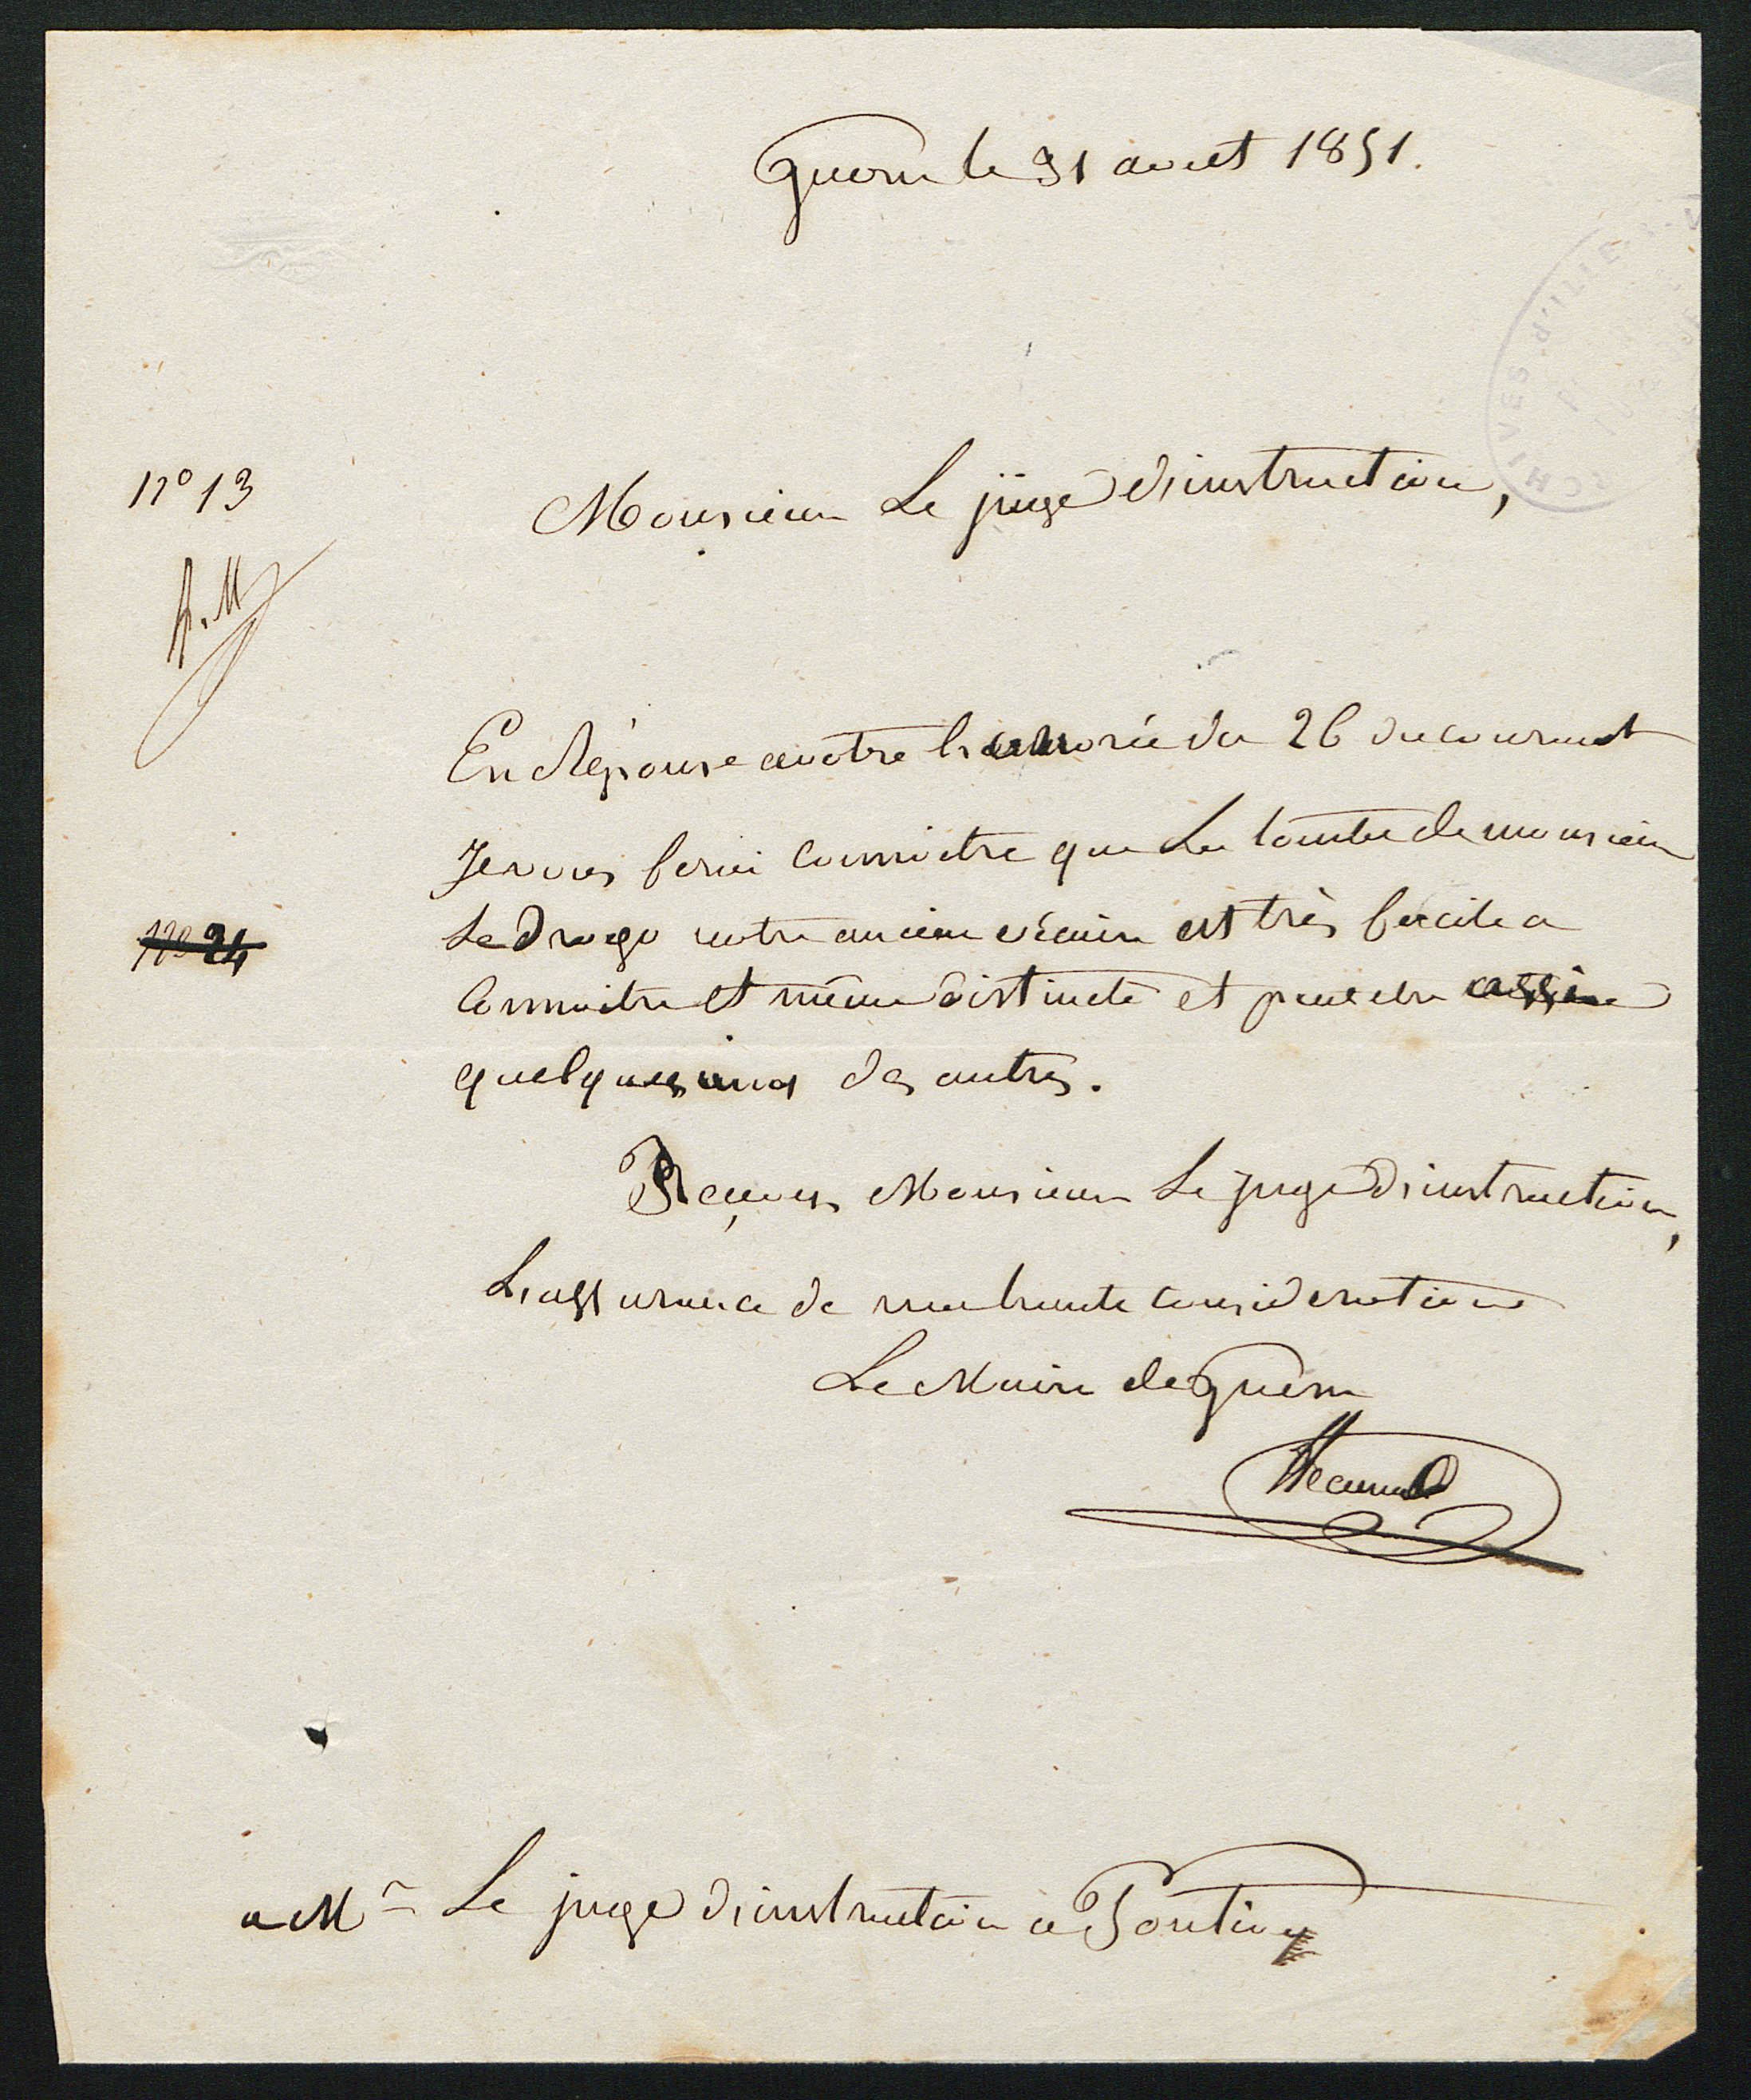 Guern le 31 aout 1851.
n° 13
Monsieur Le juge d'instruction,
h.M
En Réponse a votre honnorée du 26 du courant
Je vous ferai connoitre que La tombe de monsieur
n° 24
Le Drogo notre ancien vicaire est très facile a
Connoitre et même distincte et peut etre aussi
quelques uns des autres.
Reçevez Monsieur Le juge d'instruction,
L'assurance de ma haute consideration
Le Maire de Guern
a Mr Le juge d'instruction a Pontivy